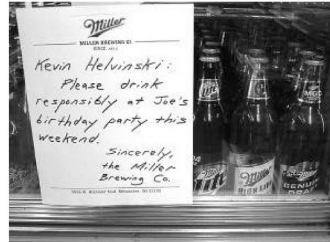 Miller
MILLER BREWING CO.
Kevin Helvinski:
Please drink
responsibly at Joe's
birthday party this
weekend.
Sincerely,
the Miller
Brewing Co.
Miller
HIGH LIFE
Lite
GENUINE